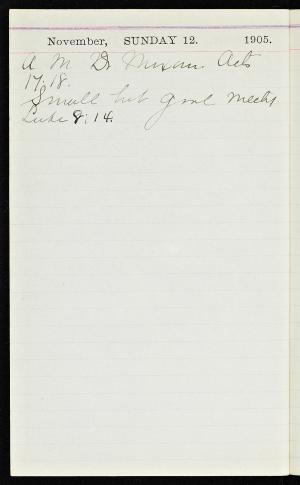 November, SUNDAY 12. 1905.
A M Dr Acts
17:18.
Small but good
Luke 8:14.